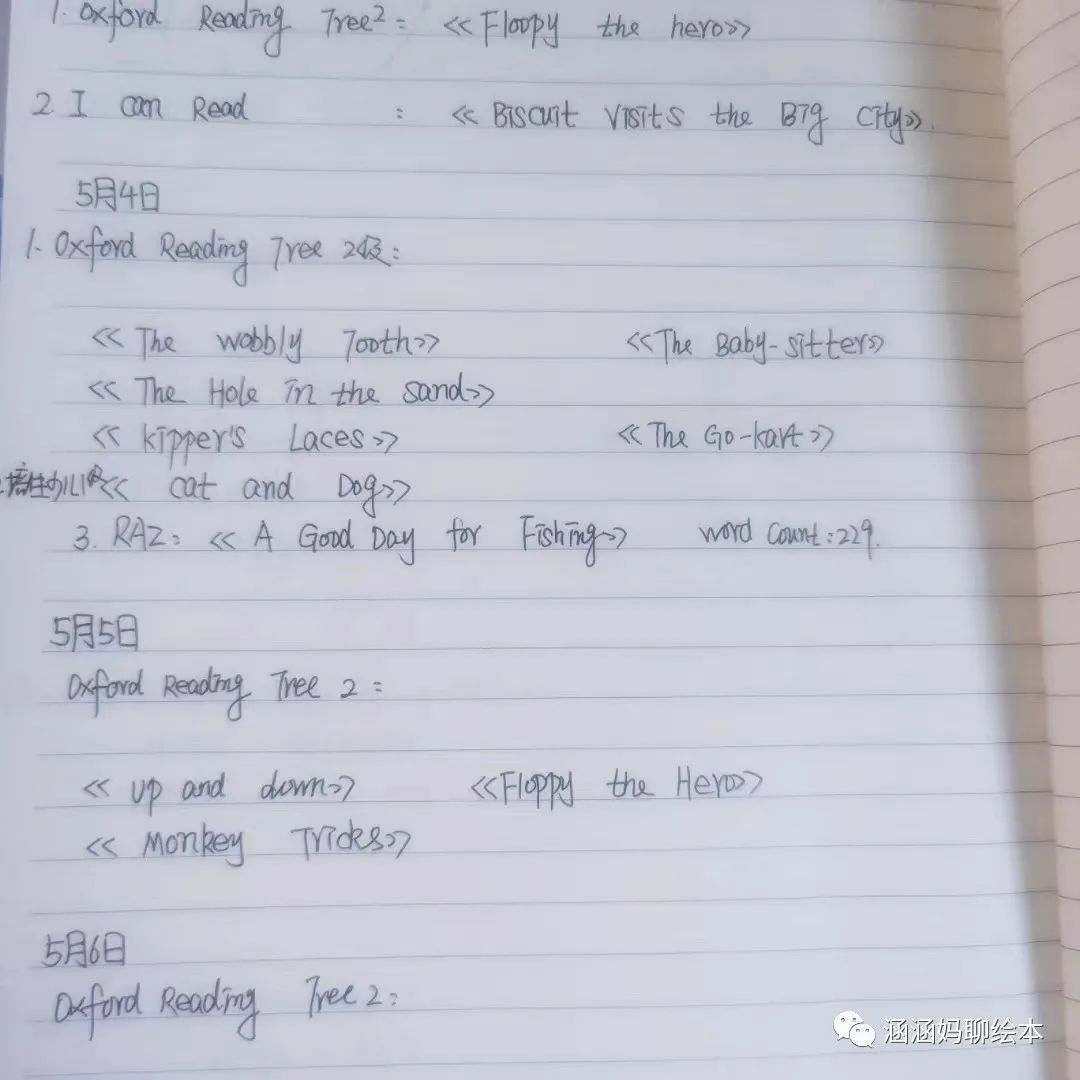 1. Oxford Reading Tree2: <<Floopy the hero>>
2 I can Read : << Biscuit visits the Big City>>.
5月4日
1. Oxford Reading Tree 2级:
<< The wobbly Tooth>> <<The Baby-sitter>>
<< The Hole in the sand>>
<< kipper's Laces>> <<The Go-kart>>
<< cat and Dog>>
3. RAZ: << A Good Day for Fishing>> word count:229.
5月5日
Oxford Reading Tree 2:
<< up and down>> <<Floppy the Hero>>
<< Monkey Tricks>>
5月6日
Oxford Reading Tree 2:
涵涵妈聊绘本